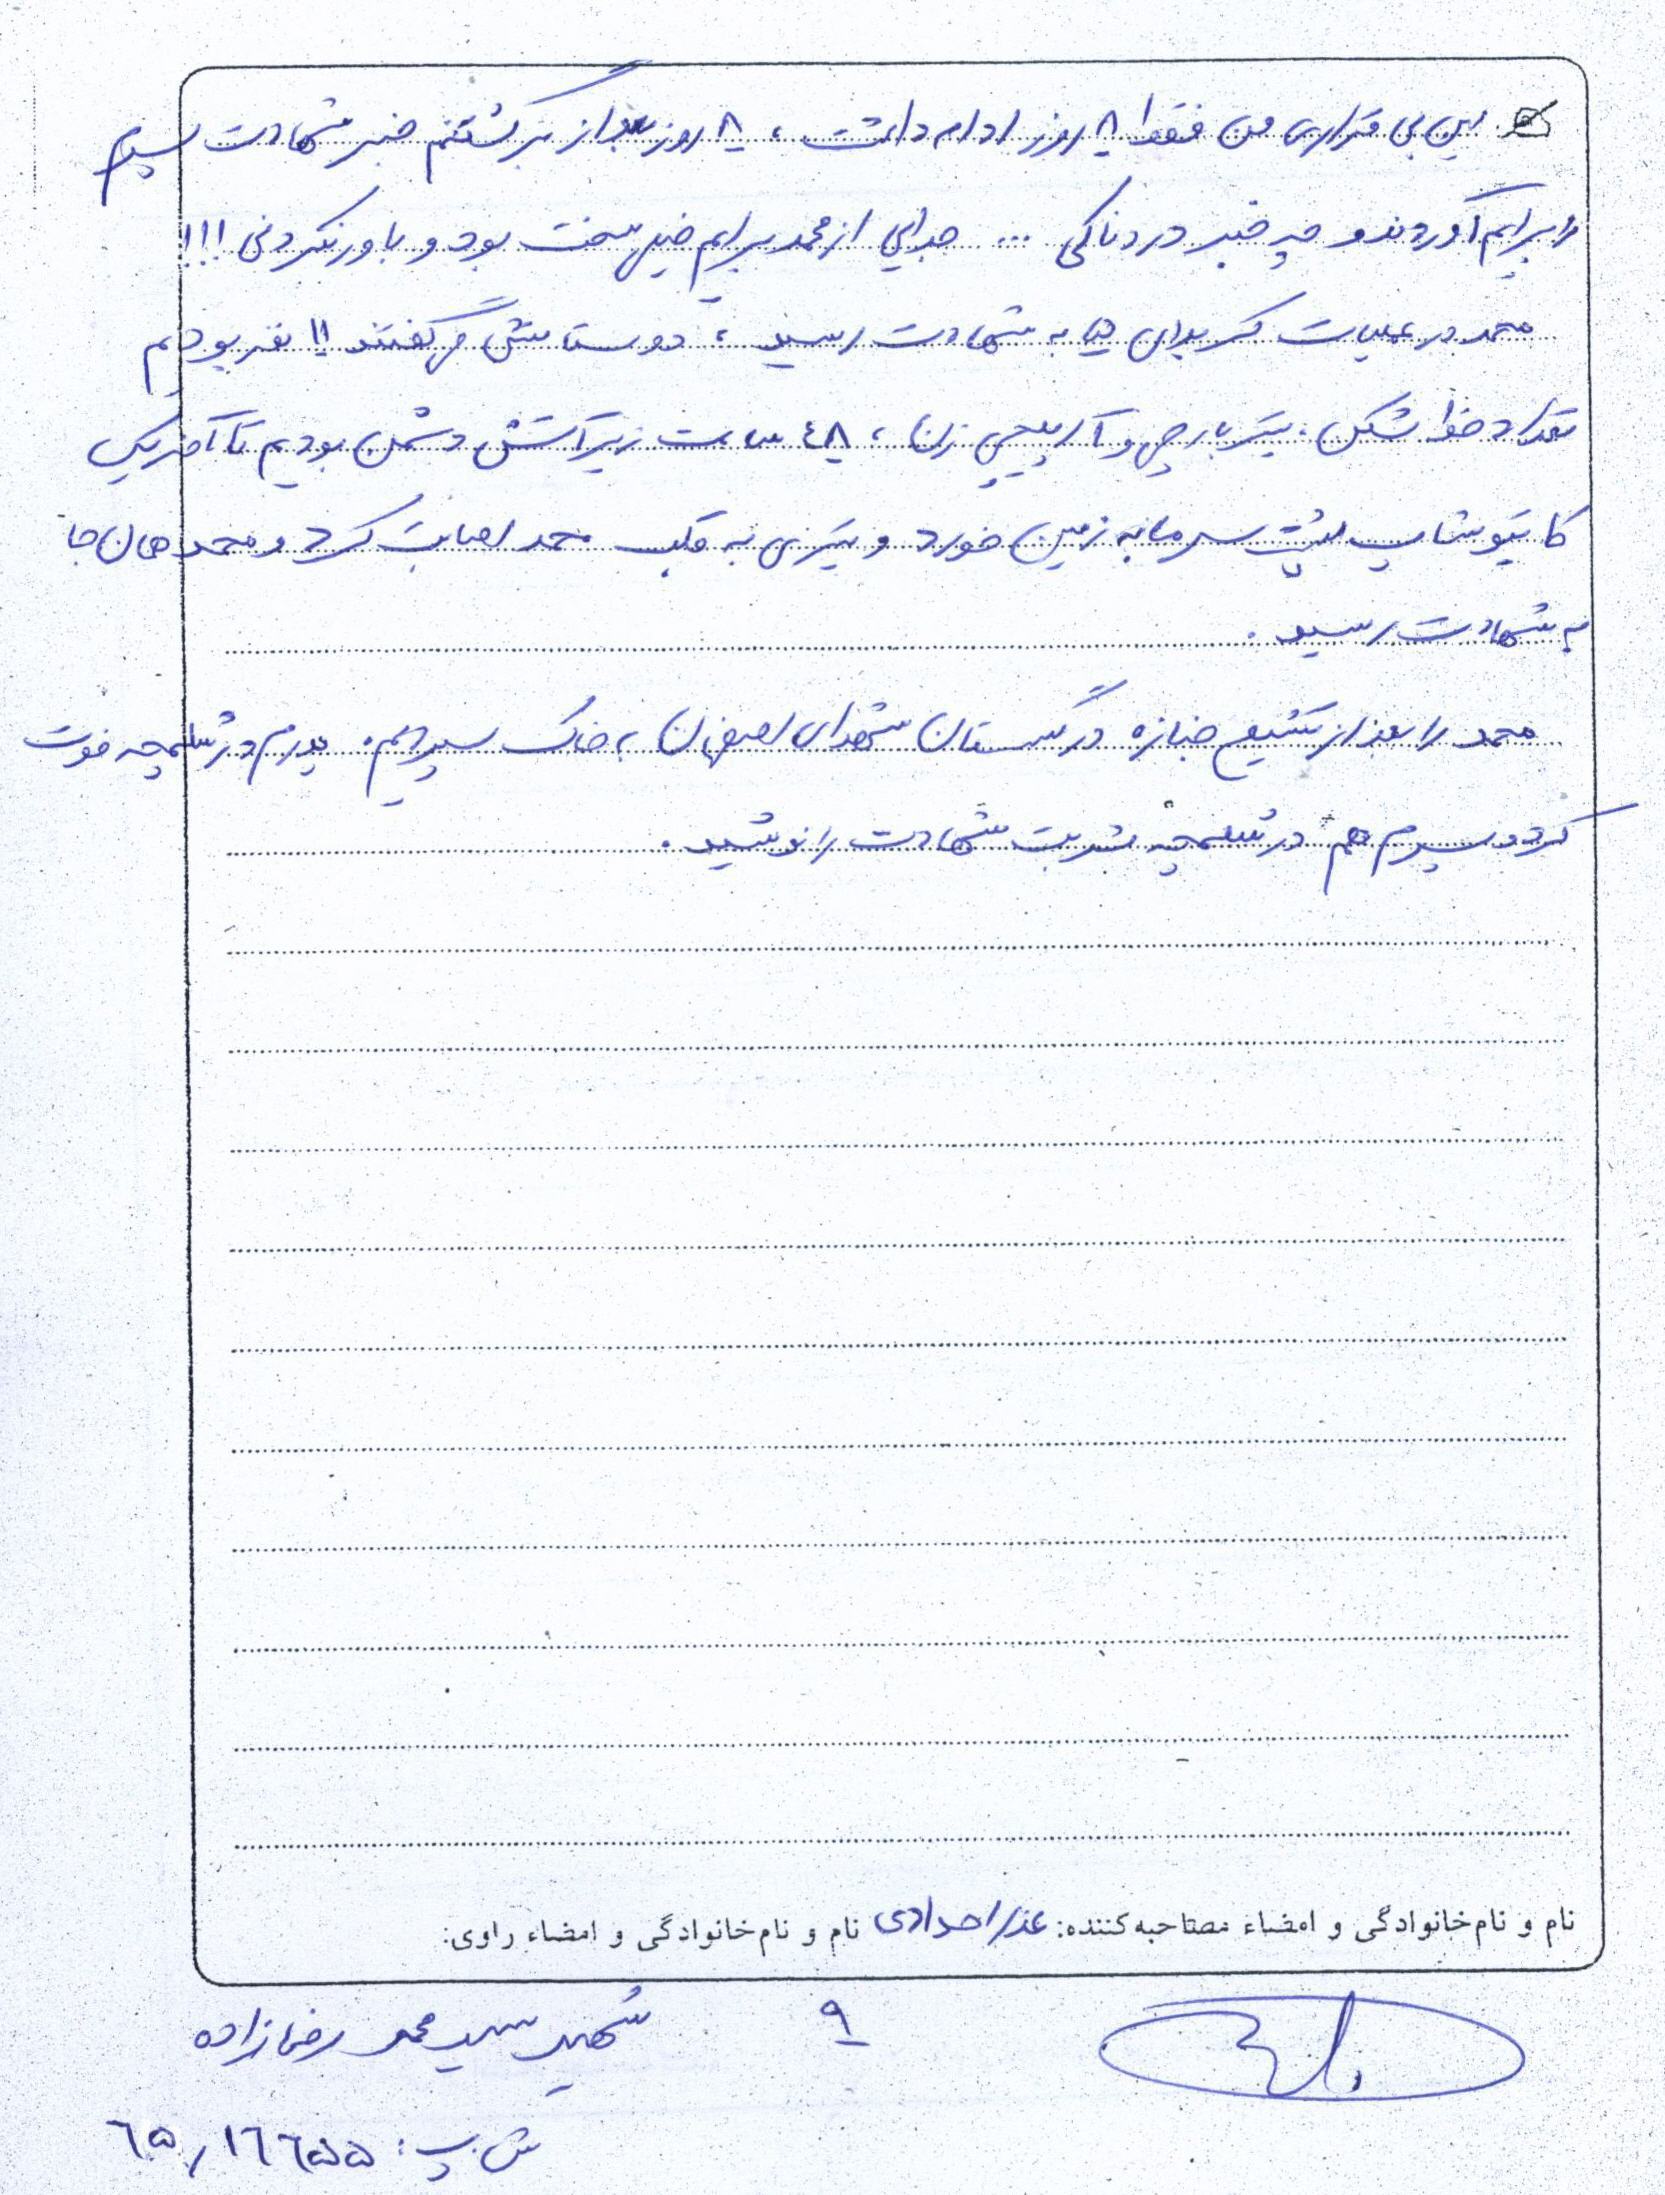 این بی قراری من فقط ۸ روز ادامه داشت ، ۸ روز بعد از برگشتنم خبر شهادت پسرم
را برایم آوردند و چه خبر دردناکی ... جدایی از محمد برایم خیلی سخت بود و باور نکردنی !!!
محمد در عملیات کربلای ۵ به شهادت رسید ، دوستانش می گفتند ۱۱ نفر بودیم
تعداد خط شکن ، تیربارچی و آرپیجی زن ، ۴۸ ساعت زیر آتش دشمن بودیم تا آخر یک
کاتیوشا پشت سر ما به زمین خورد و تیزی به قلب محمد اصابت کرد و محمد همان جا
به شهادت رسید .
محمد را بعد از تشییع جنازه در گلستان شهدای اصفهان به خاک سپردیم . پدرم در شلمچه فوت
کرد و پسرم هم در شلمچه شربت شهادت را نوشید .
نام و نام‌خانوادگی و امضاء مصاحبه‌کننده: عذرا حدادی نام و نام‌خانوادگی و امضاء راوی:
۹ شهید سید محمد رضازاده
ش پ : ۶۵/۱۶۶۵۵